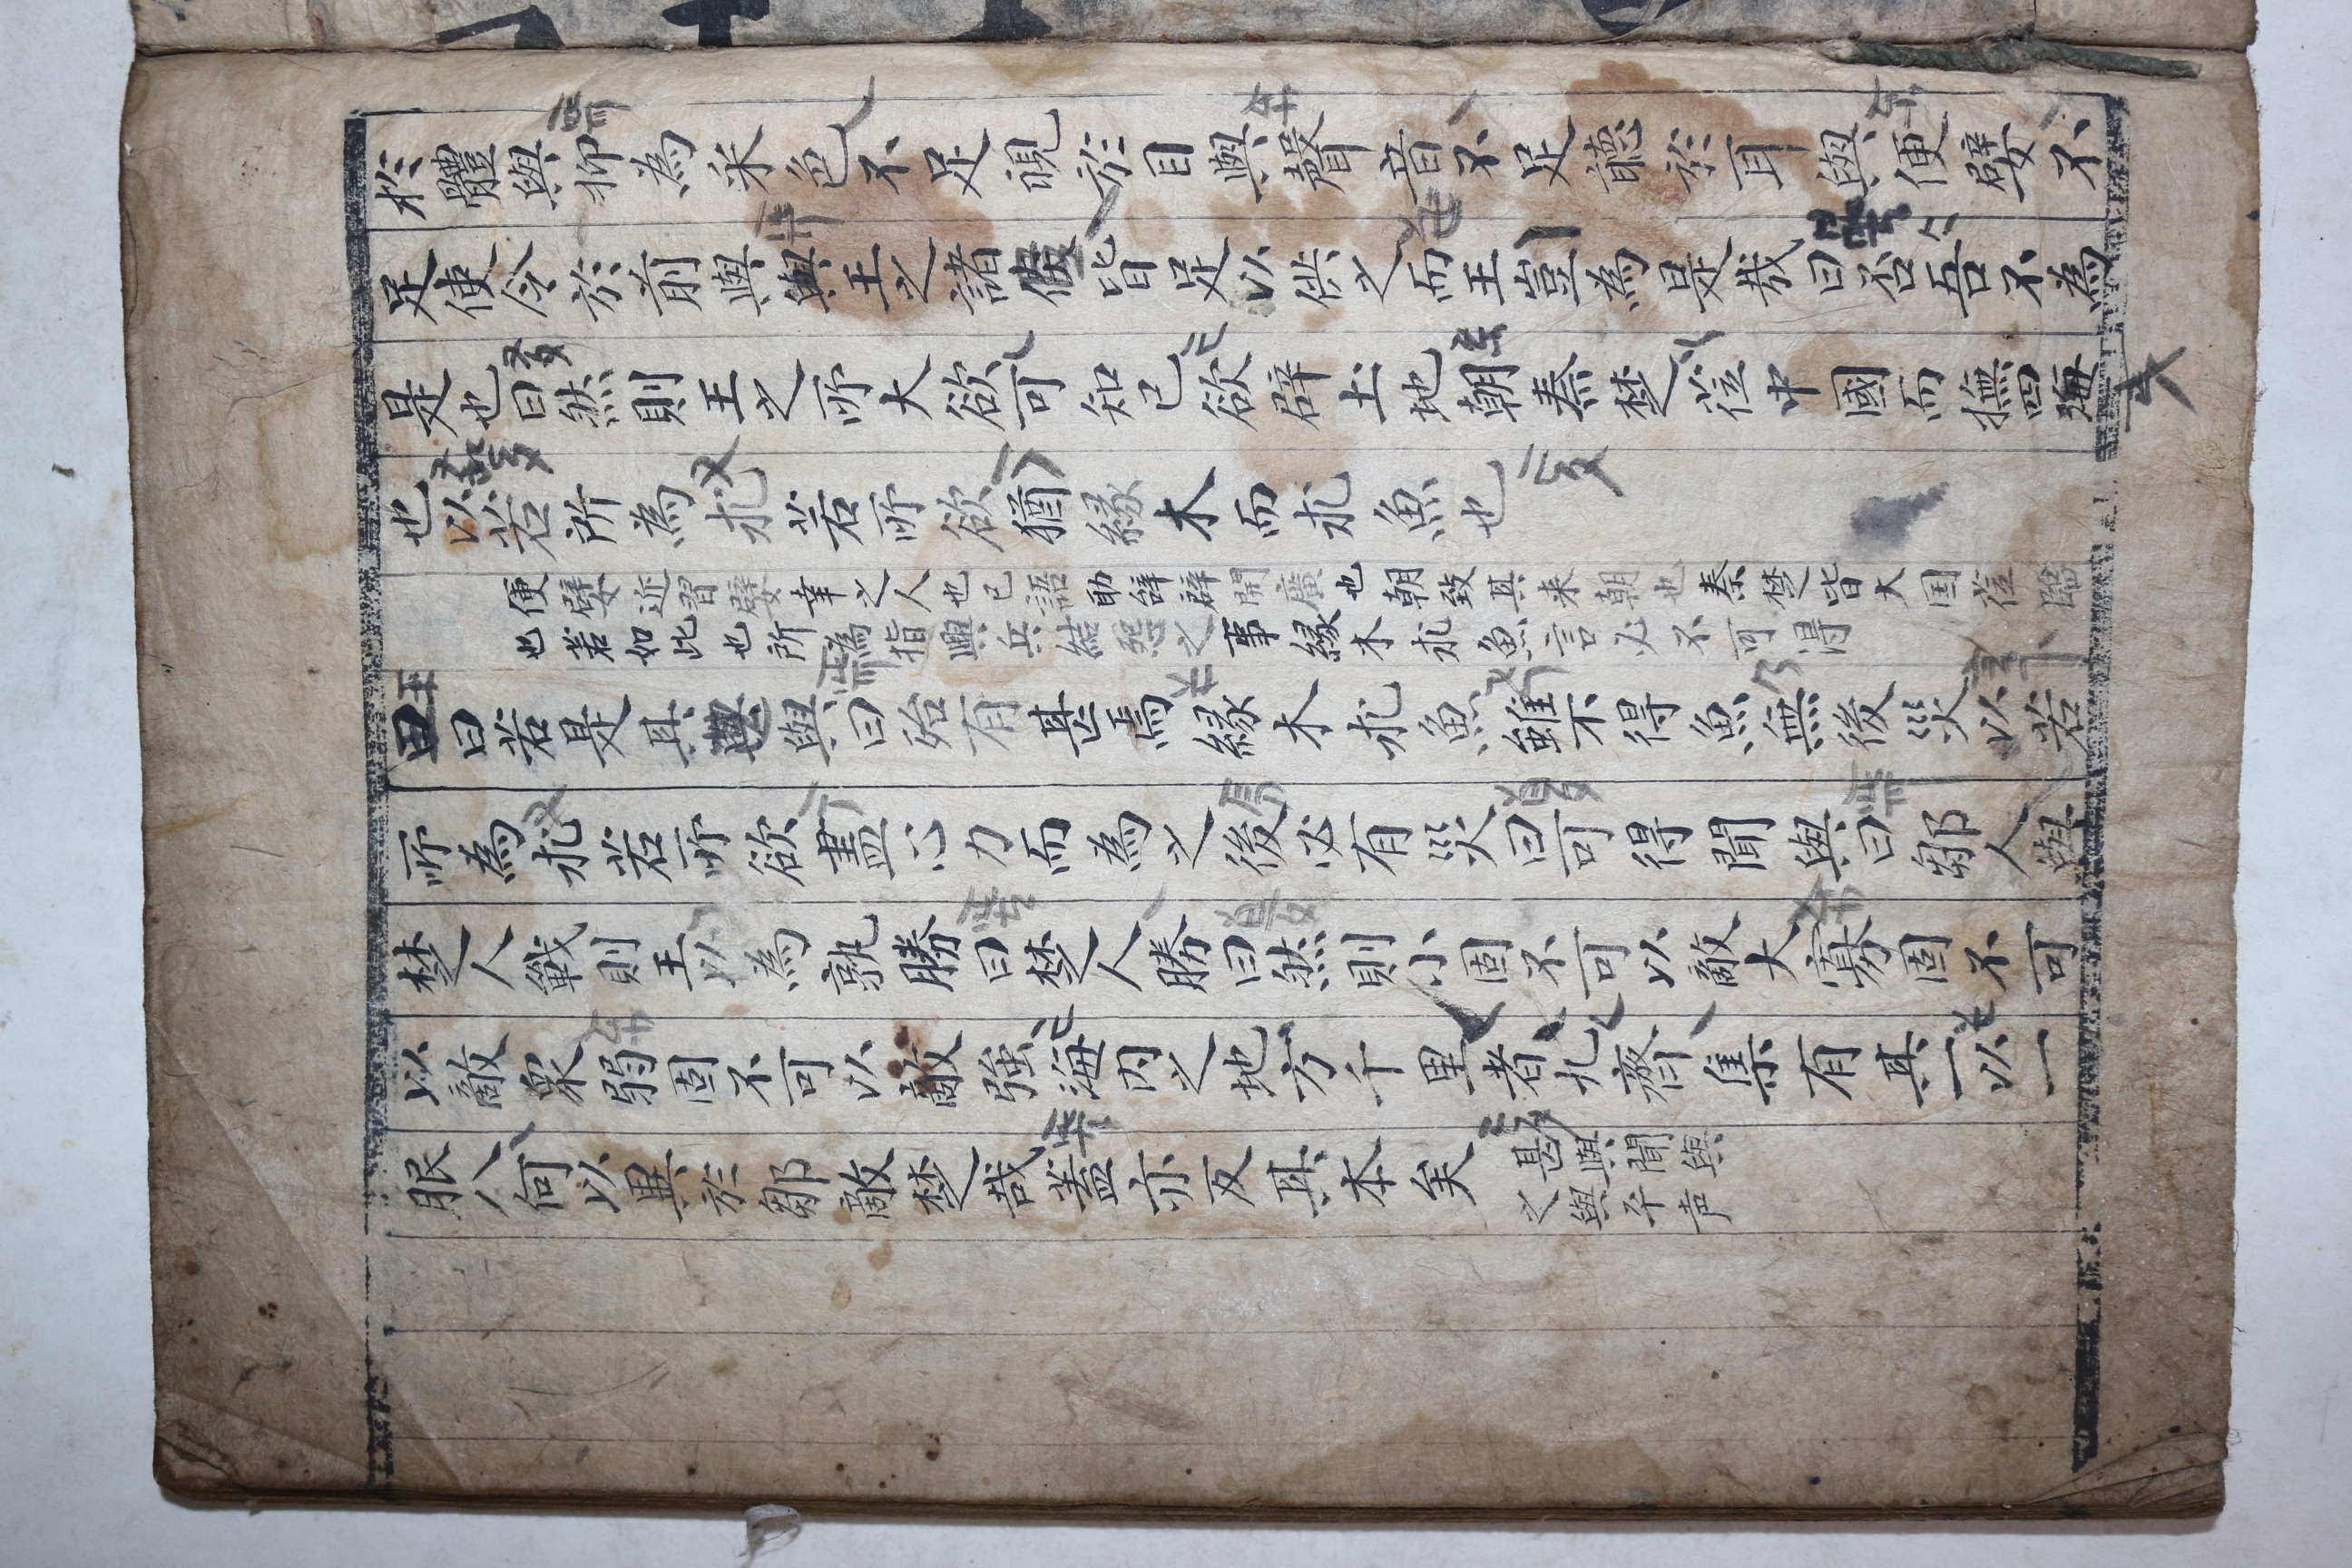 於體與抑為采色不足視於目與聲音不足聽於耳與便嬖不
足使令於前與與王之諸臣皆足以供之而王豈為是哉曰否吾不為
是也曰然則王之所大欲可知已欲辟土地朝秦楚莅中國而撫四海
也以若所為求若所欲猶緣木而求魚也
便嬖近習嬖幸之人也已語助辭辟開廣也朝致其来朝也秦楚皆大国莅臨
也若如此也所為指興兵結怨之事緣木求魚言必不可得
王曰若是其甚與曰殆有甚焉緣木求魚雖不得魚無後災以若
所為求若所欲盡心力而為之後必有災曰可得聞與曰鄒人與
楚人戰則王以為孰勝曰楚人勝曰然則小固不可以敵大寡固不可
以敵衆弱固不可以敵強海内之地方千里者九齊集有其一以一
服八何以異於鄒敵楚哉蓋亦反其本矣
甚與聞與
之與平声